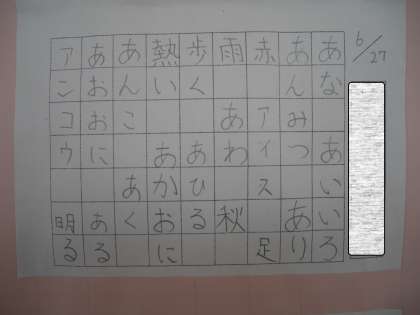 6/27
あな　あいいろ
あんみつ　あり
赤　アイス　足
雨　あわ　秋
歩く　あひる
熱い　あかおに
あんこ　あく
あおおに　ある
アンコウ　明る